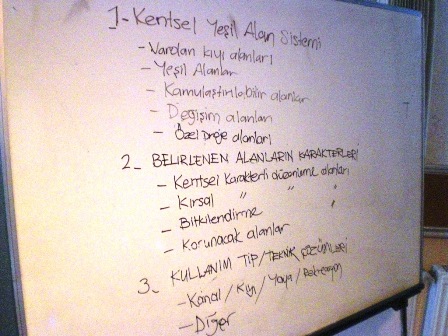 1- Kentsel Yeşil Alan Sistemi
- Vardan kıyı alanları
- Yeşil Alanlar
- Kamulaştırılabilir alanlar
- Değişim alanları
- Özel proje alanları
2- BELİRLENEN ALANLARIN KARAKTERLERİ
- Kentsel karakterli düzenleme alanları
- Kırsal " " "
- Bitkilendirme "
- Korunacak alanlar
3- KULLANIM TİP/TEKNİK ÇÖZÜMLERİ
- Kanal / Kıyı / Yaya / Rekreasyon
- Diğer